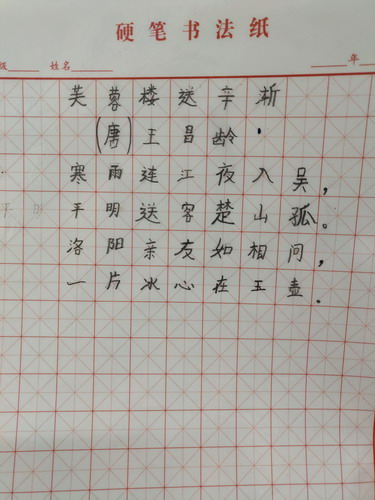 硬笔书法纸
级 姓名 年
芙蓉楼送辛渐
(唐)王昌龄·
寒雨连江夜入吴,
平明送客楚山孤。
洛阳亲友如相问,
一片冰心在玉壶.